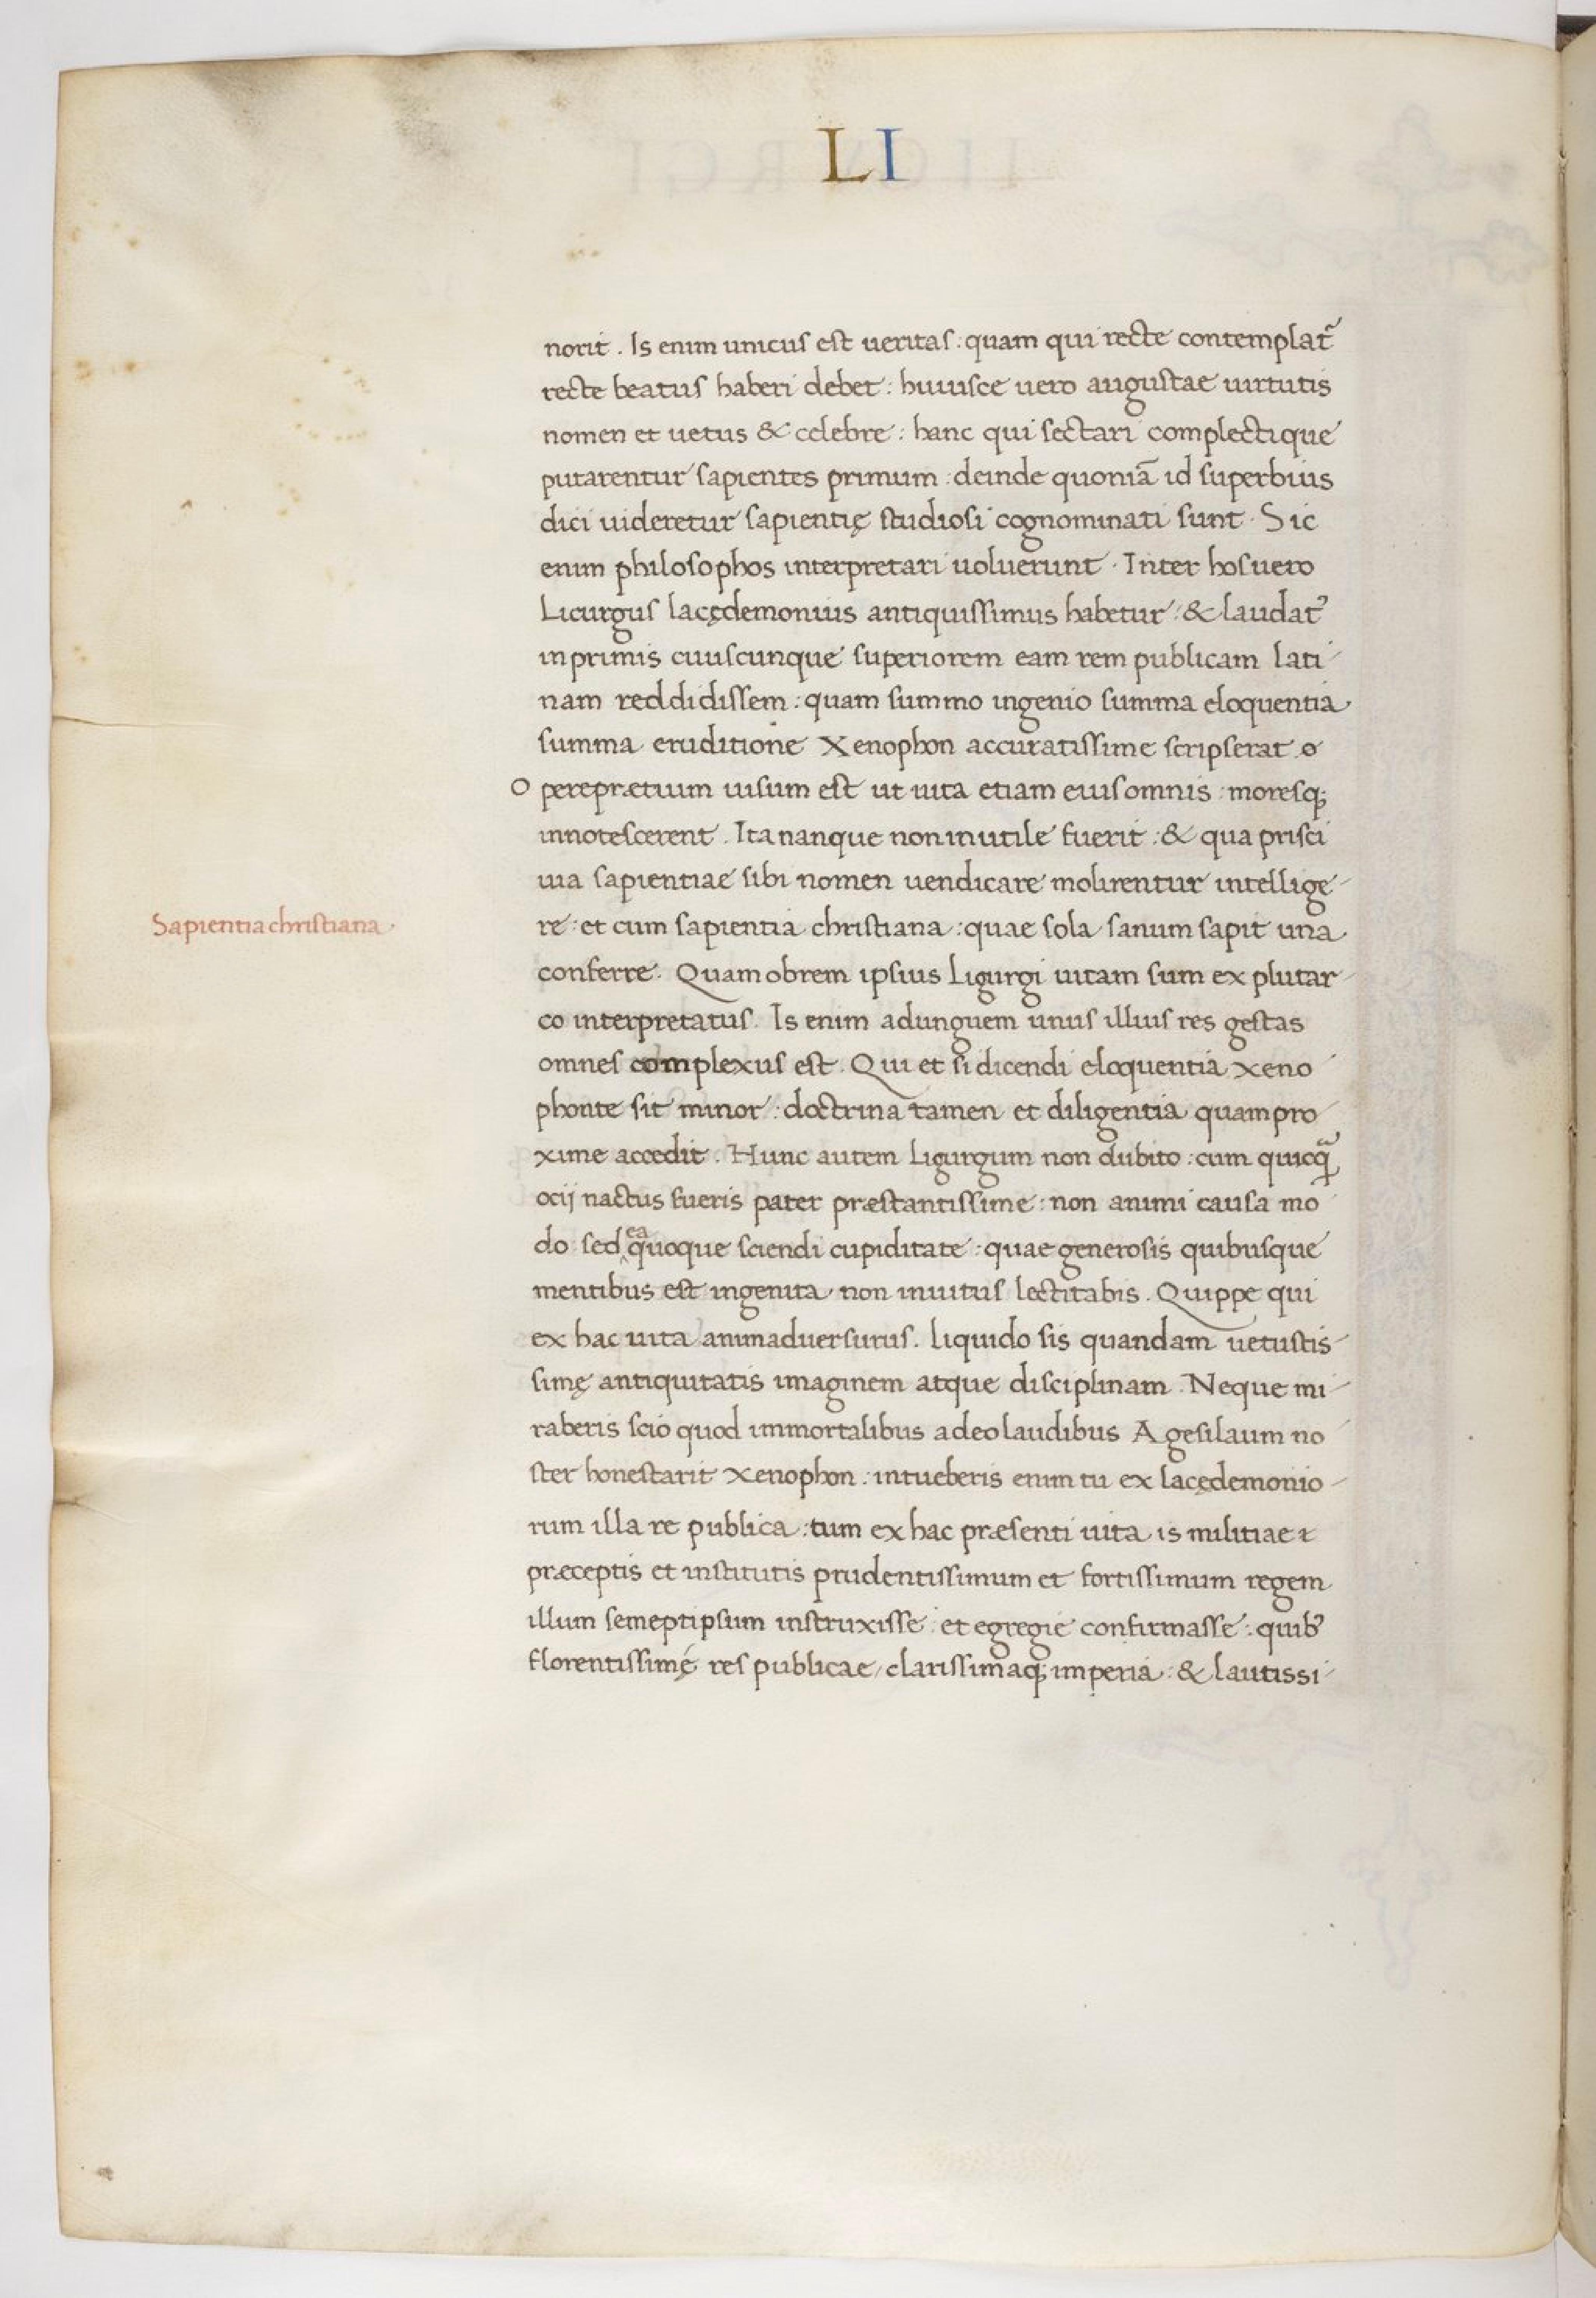 LI
norit. Is enim unicus est ueritas: quam qui recte contemplat᷑
recte beatus haberi debet: huiusce uero augustae uirtutis
nomen et uetus & celebre: hanc qui sectari complectique
putarentur sapientes primum: deinde quoniā id superbius
dici uideretur sapientię studiosi cognominati sunt. Sic
enim philosophos interpretari uoluerunt. Inter hos uero
Licurgus lacędemonius antiquissimus habetur: & laudat᷑
inprimis cuiuscunque superiorem eam rem publicam lati-
nam reddidissem: quam summo ingenio summa eloquentia
summa eruditione Xenophon accuratissime scripserat. o
O pereprætium uisum est ut uita etiam eius omnis: moresq;
innotescerent. Ita nanque non inutile fuerit: & qua prisci
uia sapientiae sibi nomen uendicare molirentur intellige-
Sapientia christiana.
re: et cum sapientia christiana: quae sola sanum sapit una
conferre. Quamobrem ipsius Ligurgi uitam sum ex plutar-
co interpretatus. Is enim adunguem unus illius res gestas
omnes complexus est. Qui et si dicendi eloquentia xeno-
phonte sit minor: doctrina tamen et diligentia quampro-
xime accedit. Hunc autem Ligurgum non dubito: cum quicqᷓ
ocij nactus fueris pater præstantissime: non animi causa mo-
do: sed ea quoque sciendi cupiditate: quae generosis quibusque
mentibus est ingenita non inuitus lectitabis. Quippe qui
ex hac uita animaduersurus. liquido sis quandam uetustis-
simę antiquitatis imaginem atque disciplinam. Neque mi-
raberis scio quod immortalibus adeo laudibus Agesilaum no-
ster honestarit Xenophon: intueberis enim tu ex lacędemonio-
rum illa re publica: tum ex hac præsenti uita is militiae &
præceptis et institutis prudentissimum et fortissimum regem
illum semeptipsum instruxisse: et egregie confirmasse: quib᾽
florentissimę res publicae, clarissimaq; imperia: & lautissi-